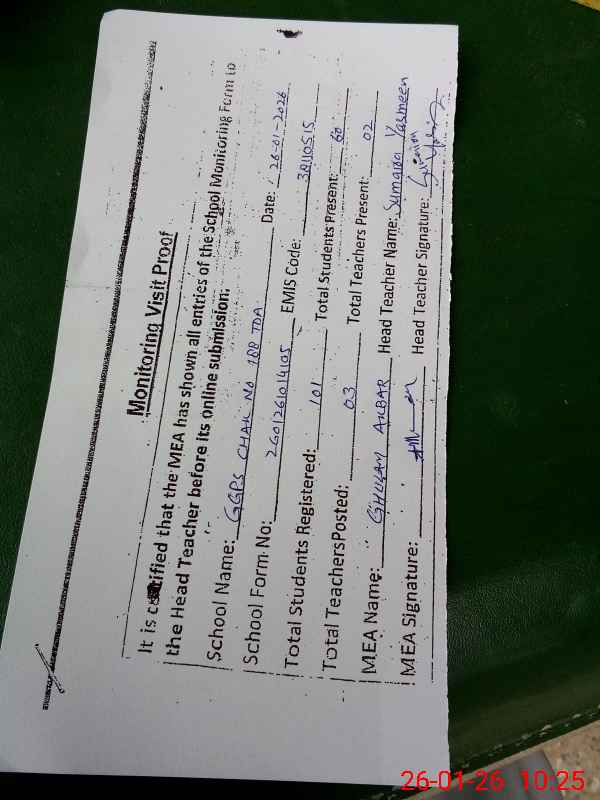 Monitoring Visit Proof
It is certified that the MEA has shown all entries of the School Monitoring Form to
the Head Teacher before its online submission.
School Name: GGPS CHAK NO 188 TDA
School Form No: 2601261014105 Date: 26-01-2026
Total Students Registered: 101 EMIS Code: 32110515
Total Teachers Posted: 03 Total Students Present: 60
MEA Name: GHULAM AKBAR Total Teachers Present: 02
MEA Signature: Head Teacher Name: Sumaira Yasmeen
Head Teacher Signature:
26-01-26 10:25